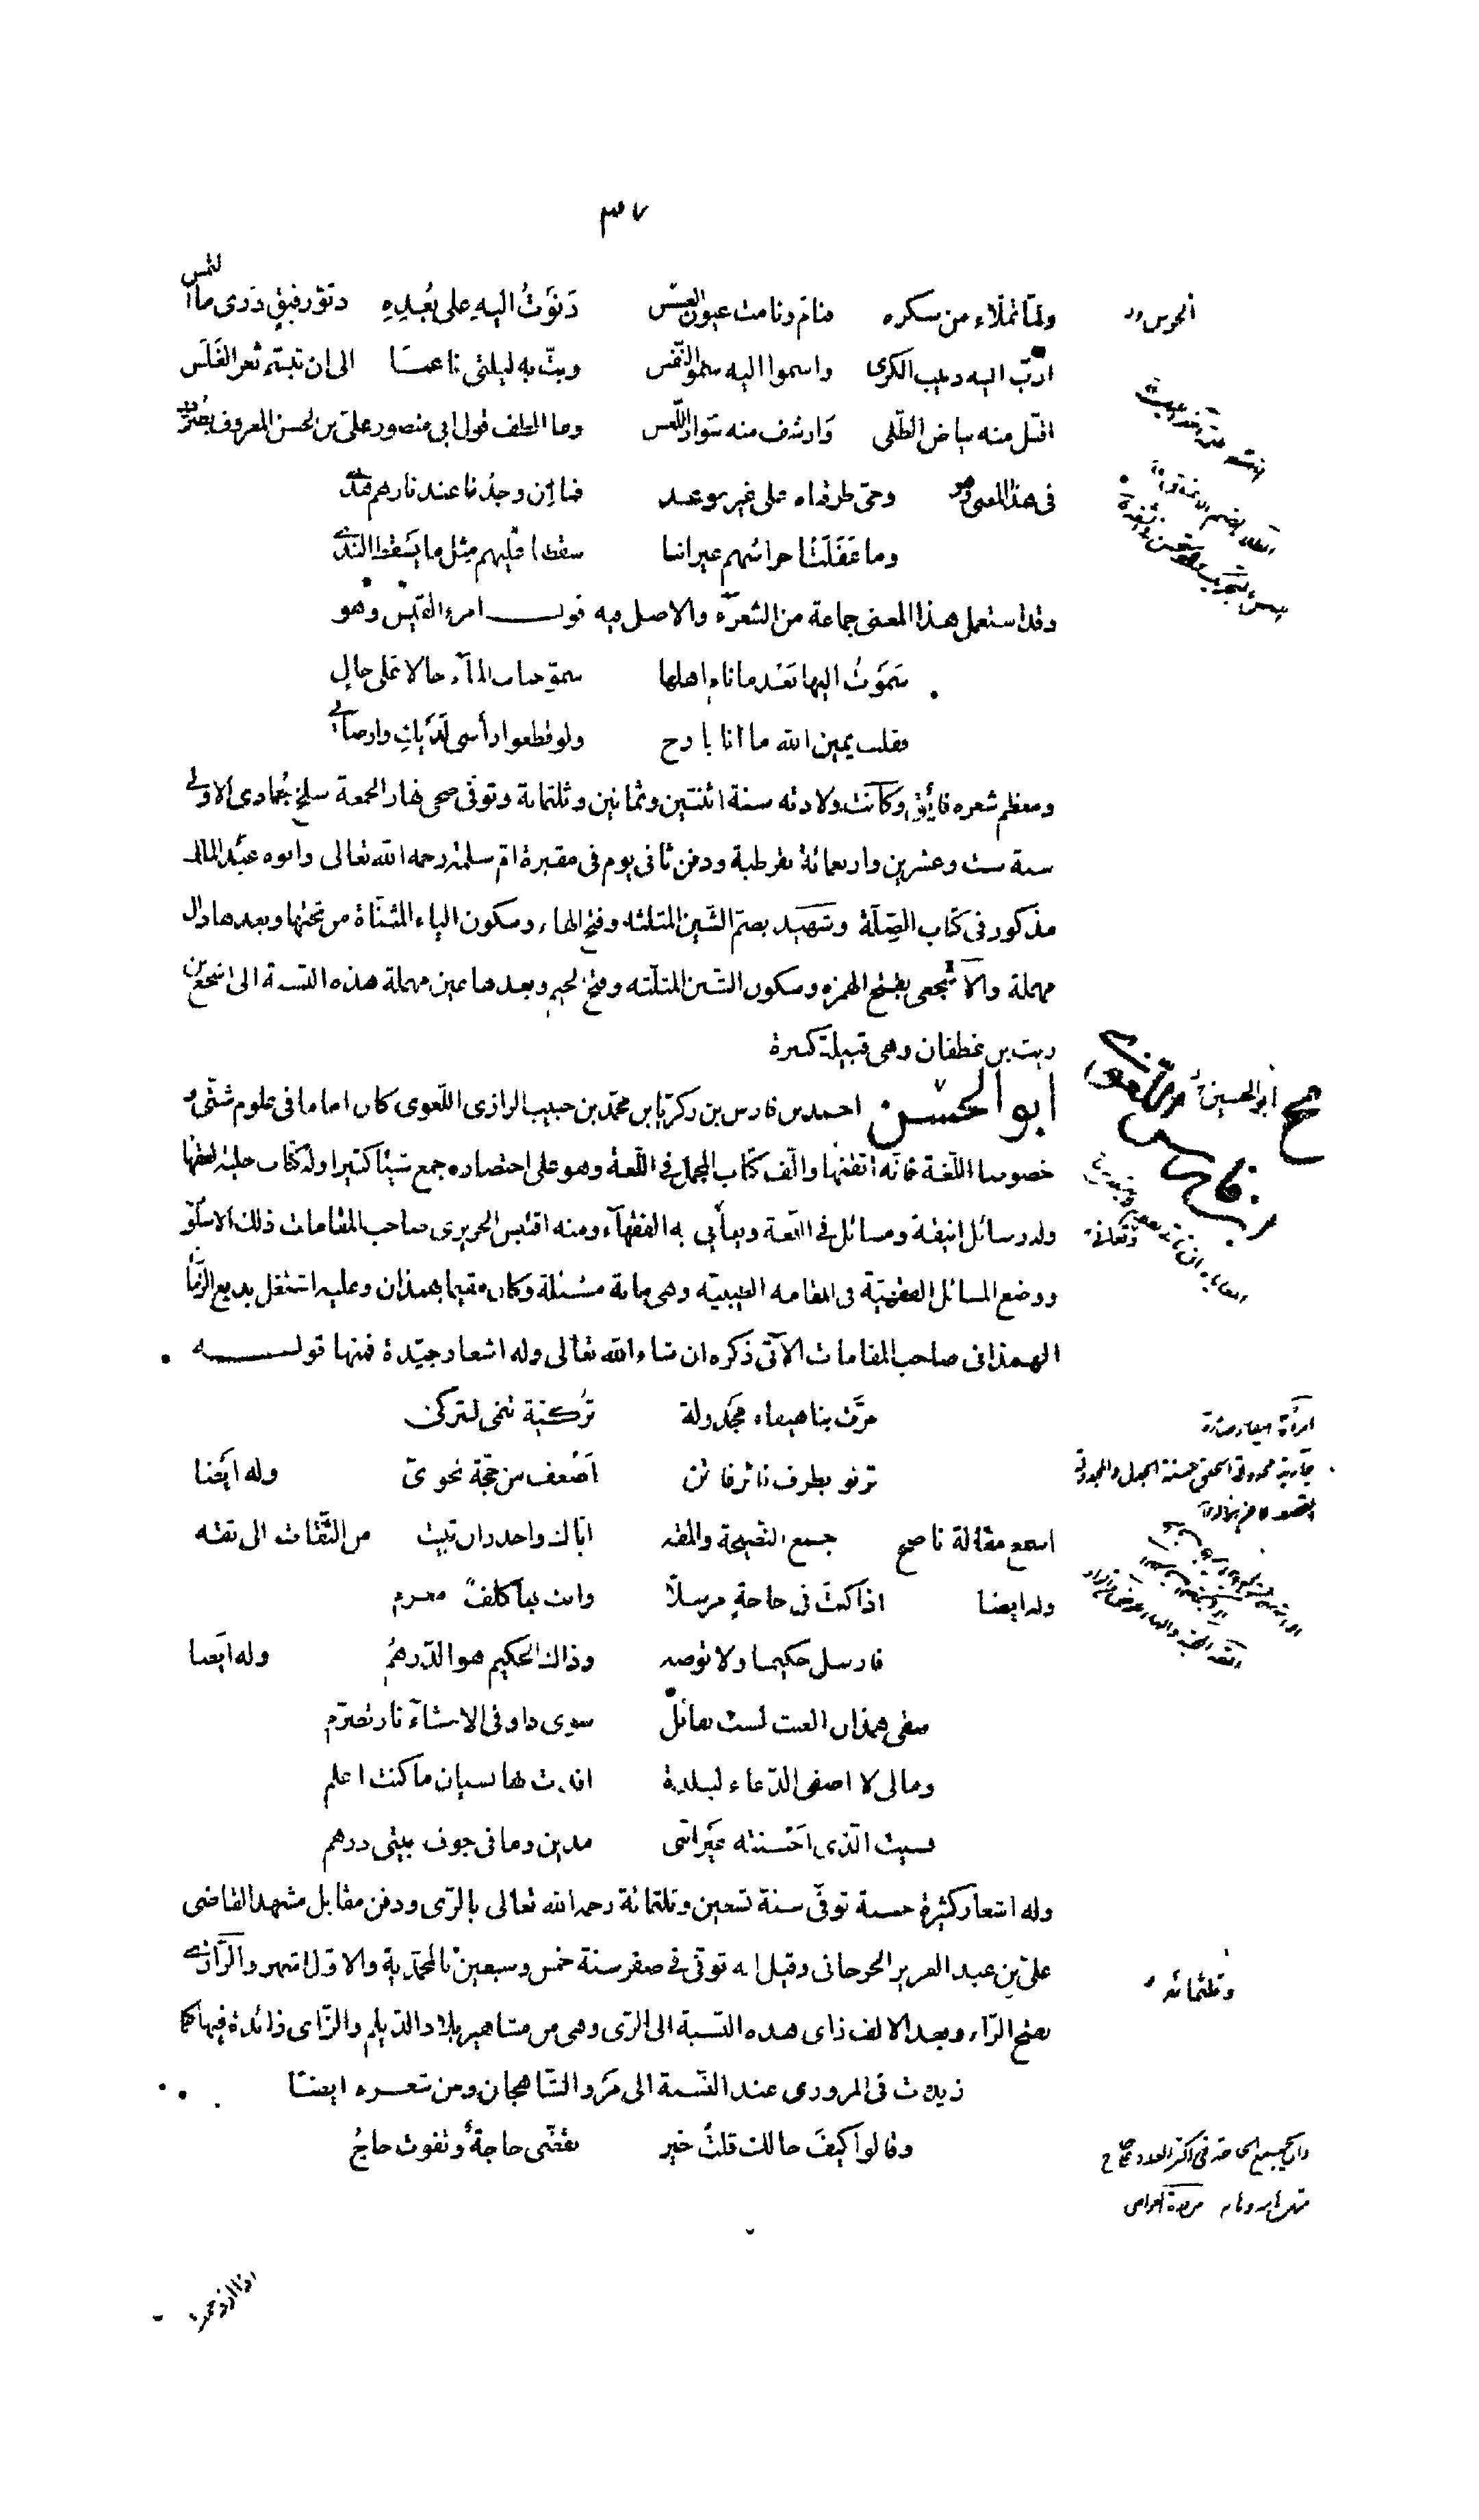 ٣٧
ولمّا تملّاء من سكره فنام ونامت عيون العسس دَنَوْتُ اليه على بُعْدِه دنوّ رفيق درى ما التمس
ادبّ اليه دبيب الكرى واسموا اليه سموّ النّفس وبتّ به ليلتى ناعما الى ان تبسّم ثغر الغَلَس
اقبّل منه بياض الطّلى وَارشف منه سَواد اللّعس وما الطف قول ابى منصور على بن الحسن المعروف بصُرّدرّ
فى هذا المعنى وهو وحىّ طرقناه على غير موعد فما اِن وجدنا عند نارهم هدى
وما غفَلَتْ احراسُهم غير اننا سقطنا عليهم مثل ما يسقط النّدى
وقد استعمل هذا المعنى جماعة من الشعرآء والاصل فيه قول امرء القيس وهو
سَمَوْتُ اليها بَعْد ما نام اهلها سموّ حباب المآء حالا على حالِ
فقلت يمين الله ما انا بارح ولو قطعوا رأسى لدَيْكِ واوصالى
ومعظم شعره فائق وكانت ولادته سنة اثنتين وثمانين وثلثمائة وتوفى ضحى نهار الجمعة سلخ جُمادى الاولى
سنة ست وعشرين واربعمائة بقرطبة ودفن ثانى يوم فى مقبرة امّ سلمة رحمه الله تعالى وابوه عبد الملك
مذكور فى كتاب الصِّلَة وشهَيد بضمّ الشين المثلثه وفتح الهاء وسكون الياء المثنّاة من تحتها وبعدها دال
مهملة والاَشجعى بفتح الهمزه وسكون الشين المثلّثه وفتح الجيم وبعدها عين مهملة هذه النسبة الى اشجع بن
ريث بن غطفان وهى قبيلة كبيرة
ابو الحسَن احمد بن فارس بن زكريّا بن محمّد بن حبيب الرازى اللّغوى كان اماما فى علوم شتّى و
خصوصا اللّغة فانّه اتقنها والّف كتاب المجمل فى اللّغة وهو على اختصاره جمع شيئا كثيرا وله كتاب حلية الفقها
وله رسائل انيقة ومسائل فى اللّغة ويعايى به الفقهآء ومنه اقتبس الحريرى صاحب المقامات ذلك الاسلوب
ووضع المسائل الفقهيّة فى المقامه الطيبيّه وهى مائة مسئلة وكان مقيما بهمذان وعليه اشتغل بديع الزّمان
الهمذانى صاحب المقامات الآتى ذكره ان شاء الله تعالى وله اشعار جيّدة فمنها قوله
مرَّت بنا هيفاء مجدولة تركيّة تنمى لتركى
ترنو بطرف فاتر فاتن اَضْعف من حجّة نحوىّ وله ايضا
اسمع مقالة ناصح جمع النّصيحة والمقه ايّاك واحذر ان تبيت من الثّقات الى ثقه
وله ايضا اذا كنتَ فى حاجةٍ مرسلاً وانت بها كلفٌ مغرم
فارسل حكيما ولا توصه وذاك الحكيم هو الدّرهمُ وله ايضا
سقى همذان الغيث لست بقائل سوى ذا وفى الاحشآء نار تضرّم
ومالى لا اصفى الدّعاء لبلدة افدت بها نسيان ما كنت اعلم
نسيت الّذى اَحْسنته غير اننى مدين وما فى جوف بيتى درهم
وله اشعار كثيرة حسنة توفّى سنة تسعين وثلثمائة رحمه الله تعالى بالرّى ودفن مقابل مشهد القاضى
علىّ بن عبد العزيز الجرجانى وقيل انه توفّى فى صفر سنة خمس وسبعين بالمحمّدية والاوّل اشهر والرّازى
بفتح الرّاء وبعد الالف زاى هذه النّسبة الى الرّى وهى من مشاهير بلاد الدّيلم والزّاى زائدة فيها كما
زيدت فى المروزى عند النّسبة الى مَرْو الشّاهجان ومن شعره ايضا
وقالوا كيف حالك قلتُ خير تقضّى حاجةٌ وتفوت حاجُ
صح ابو الحسين
ابن فارس اللّغوى
وثلثمائه